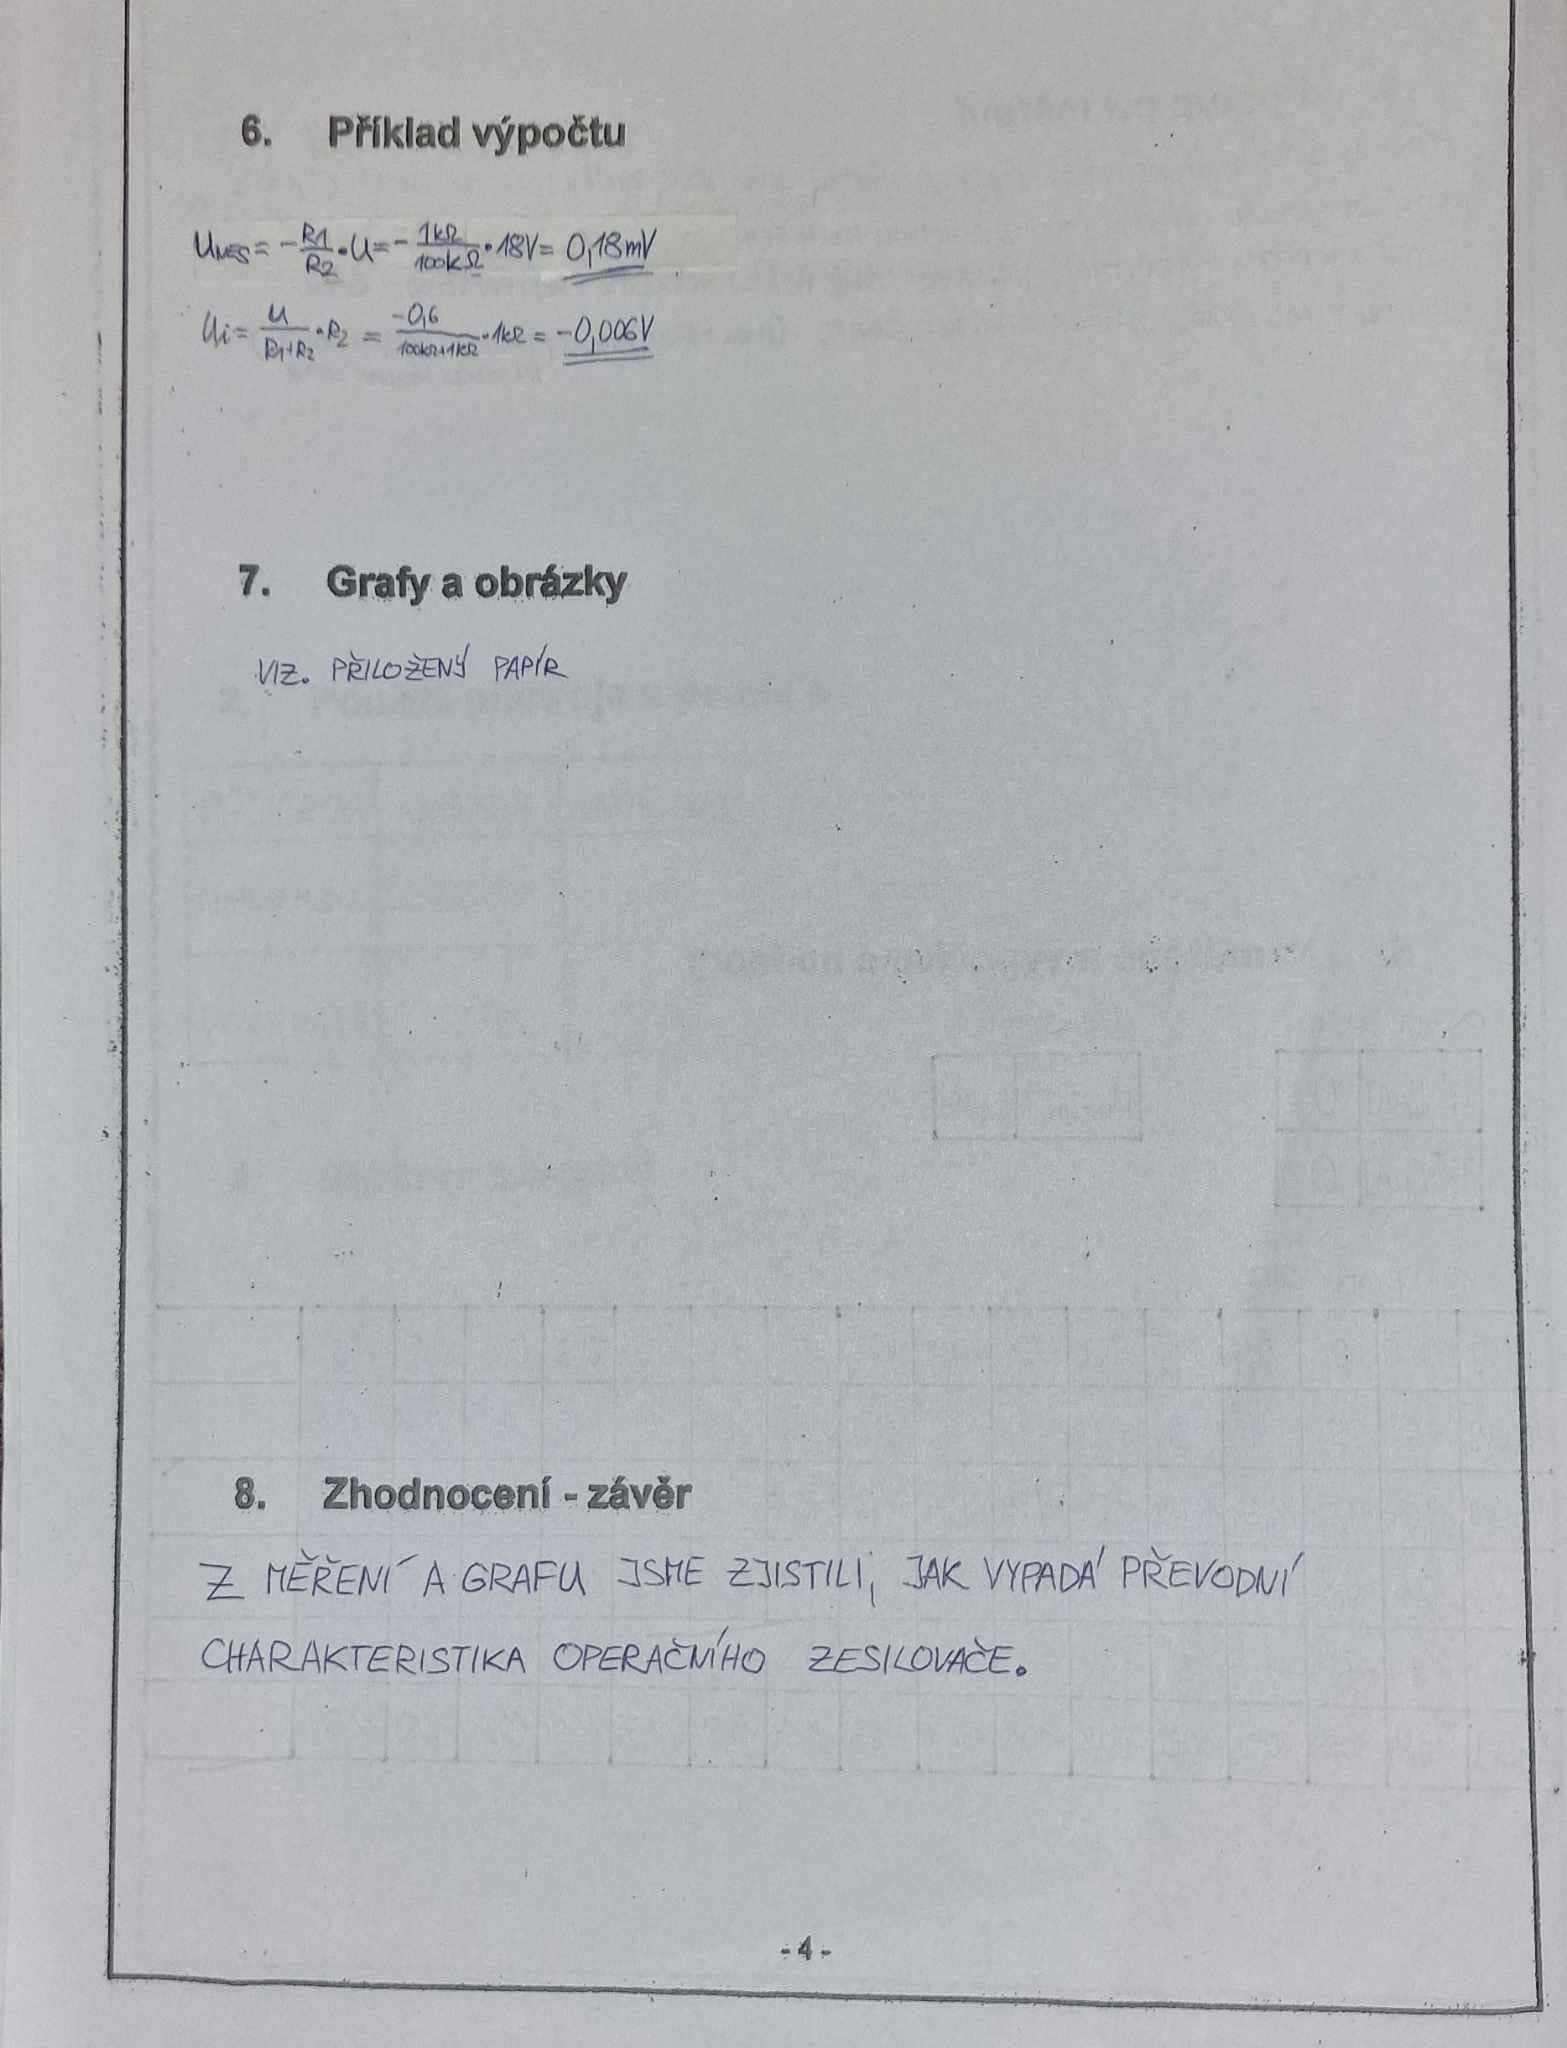 6. Příklad výpočtu
UNES = - R1/R2 · U = - 1kΩ/100kΩ · 18V = 0,18mV
Ui = U/R1+R2 · R2 = -0,6/100kΩ+1kΩ · 1kΩ = -0,006V
7. Grafy a obrázky
VIZ. PŘILOŽENÝ PAPÍR
8. Zhodnocení - závěr
Z MĚŘENÍ A GRAFU JSME ZJISTILI, JAK VYPADÁ PŘEVODNÍ
CHARAKTERISTIKA OPERAČNÍHO ZESILOVAČE.
- 4 -